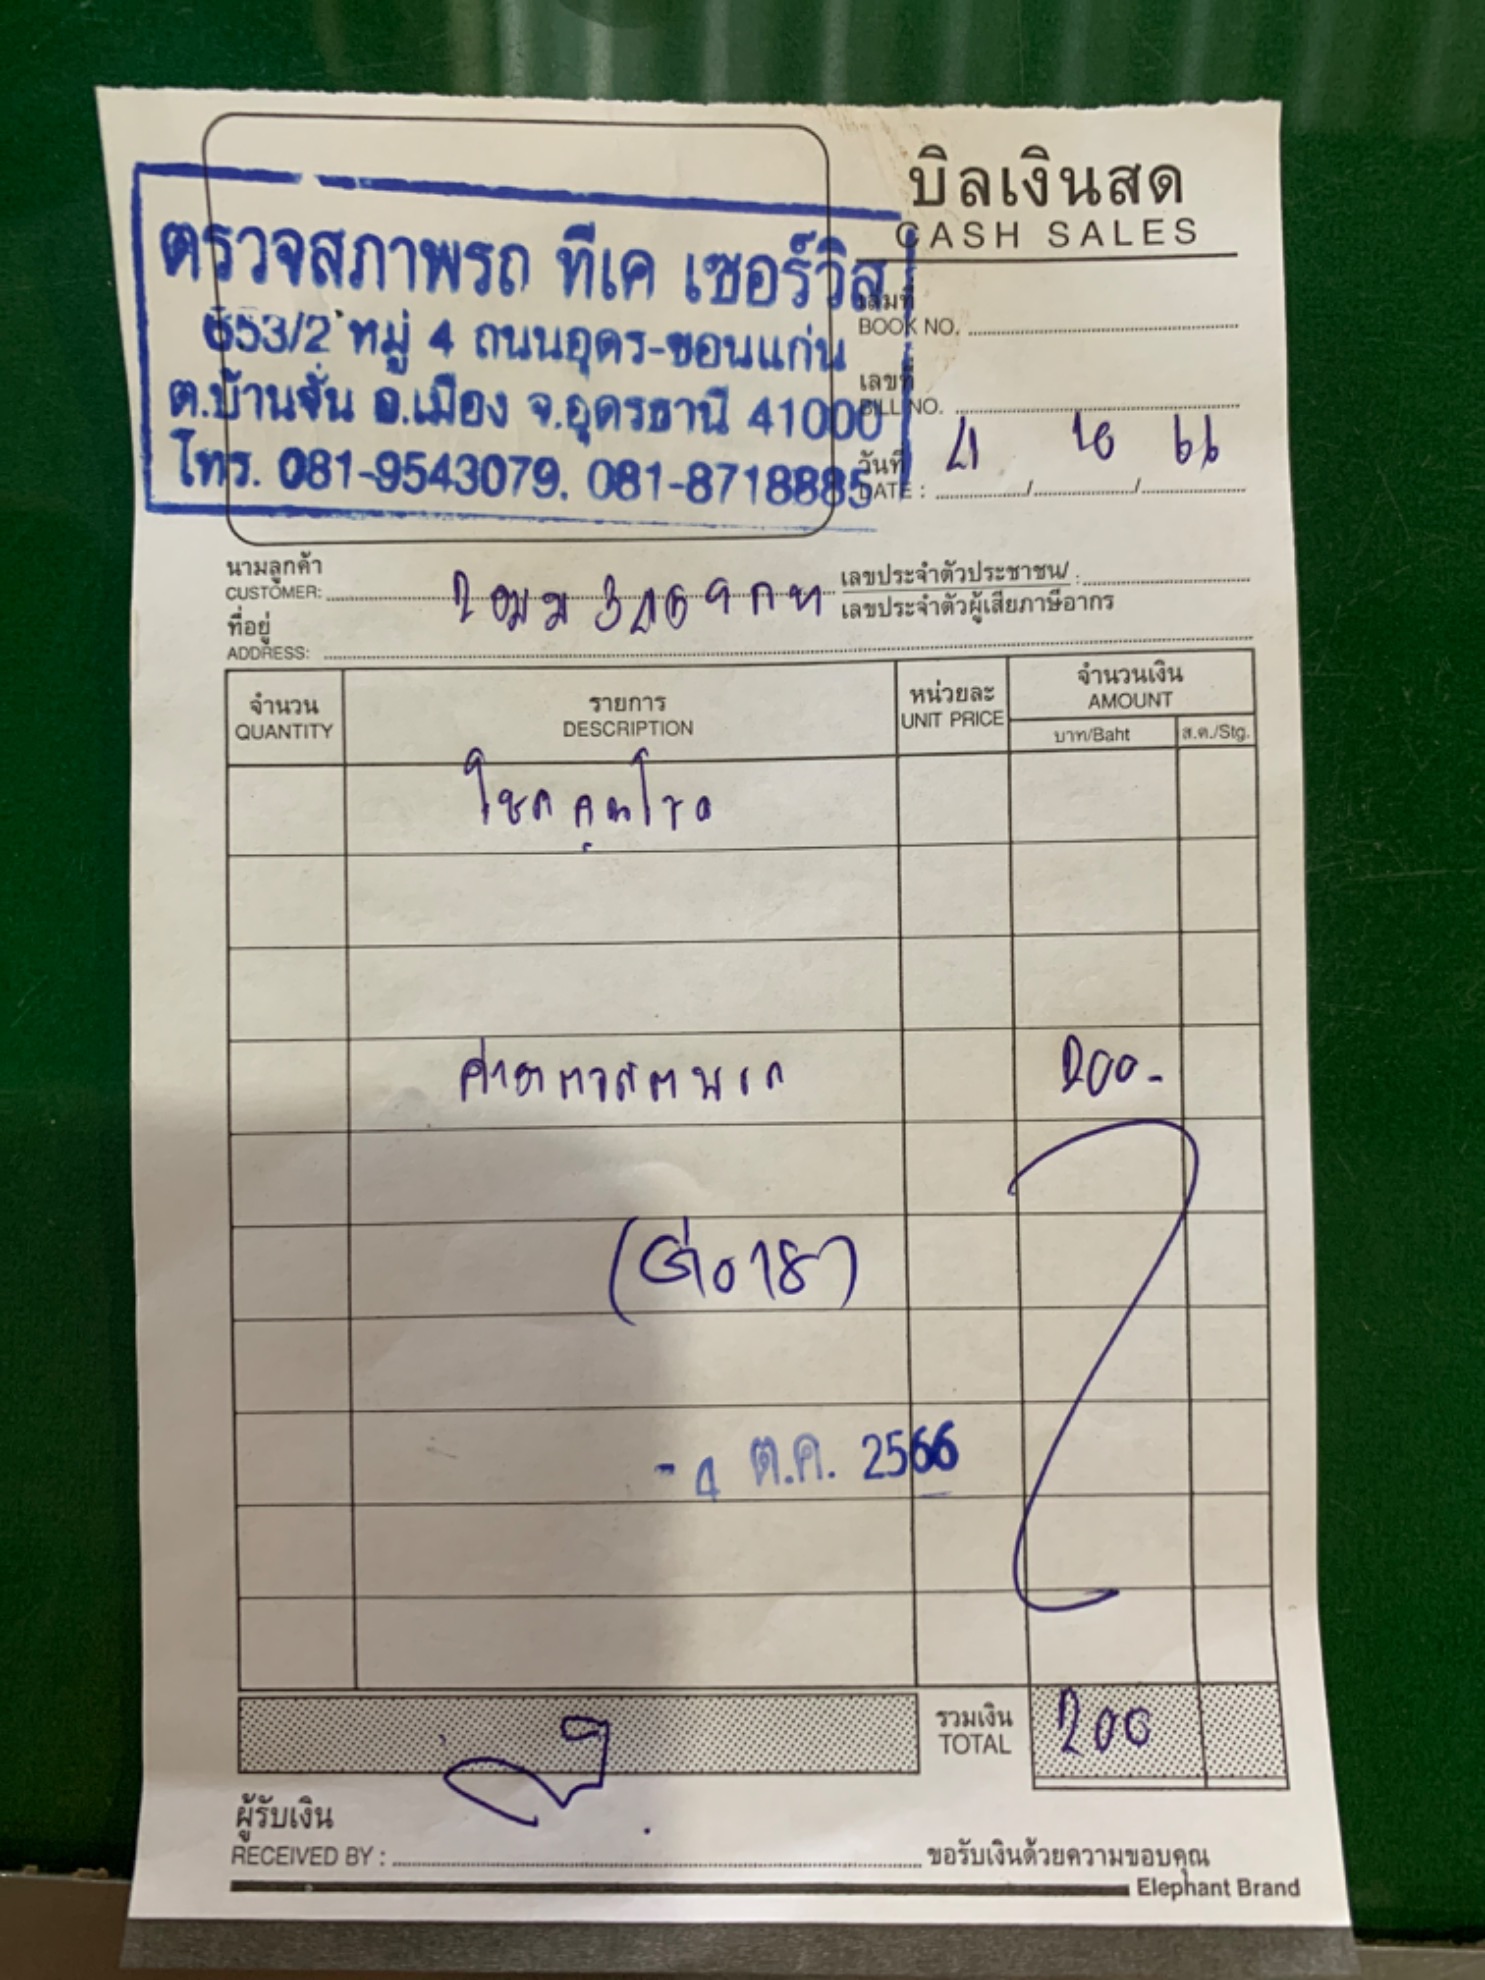 บิลเงินสด
CASH SALES
ตรวจสภาพรถ ทีเค เซอร์วิส
653/2 หมู่ 4 ถนนอุดร-ขอนแก่น
ต.บ้านจั่น อ.เมือง จ.อุดรธานี 41000
โทร. 081-9543079. 081-8718885
เล่มที่
BOOK NO.
เลขที่
BILL NO.
วันที่ 4 10 66
DATE : / /
นามลูกค้า
CUSTOMER: กท
เลขประจำตัวประชาชน/ :
เลขประจำตัวผู้เสียภาษีอากร
ที่อยู่
ADDRESS:
จำนวน รายการ หน่วยละ จำนวนเงิน
QUANTITY DESCRIPTION UNIT PRICE AMOUNT
บาท/Baht ส.ต./Stg.
ค่าตรวจสภาพรถ 200-
- 4 ต.ค. 2566
รวมเงิน 200
TOTAL
ผู้รับเงิน
RECEIVED BY :
ขอรับเงินด้วยความขอบคุณ
Elephant Brand